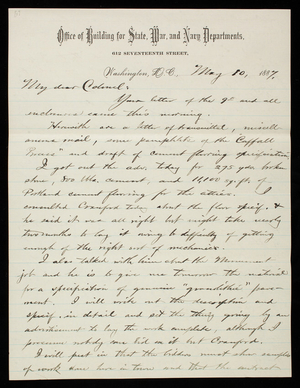 Office of Building for State, War, and Navy Departments,
612 SEVENTEENTH STREET,
Washington, D.C. May 10, 1887.
My dear Colonel:
Your letter of the 9th and all
enclosures came this morning.
Herewith are a letter of transmittal, miscell-
aneous mail, some pamphlets of the
and draft of cement flooring specification
I got out the adv. today for 275 yds broken
stone, bbls cement, 11,000 sq. ft. of
Portland cement flooring for the attics. I
consulted Cranford today about the floor specif. &
he said it was all right but might take nearly
two months to lay it owing to difficulty of getting
enough of the right sort of mechanics.
I also talked with him about the Monument
job and he is to give me tomorrow the material
for a specification of genuine "granolithic" pave-
ment. I will write out the description and
specif. in detail and set the thing going by an
advertisement to lay the work complete, although I
presume nobody will bid on it but Cranford.
I will put in that the bidders must show samples
of work done here in town and that the contract